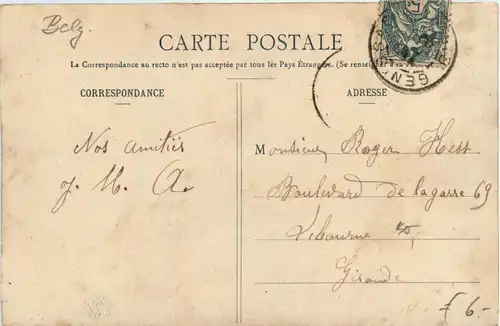 Belg.
CARTE POSTALE
La Correspondance au recto n'est pas acceptée par tous les Pays Étrangers. (Se renseigner
CORRESPONDANCE
ADRESSE
Nos amitiés
J. M. A.
Monsieur Roger Hess
Boulevard de la gare 69
Libourne
Gironde
£ 6-